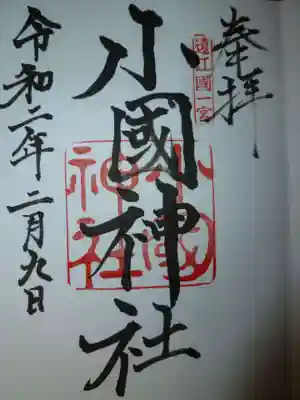 奉拝
遠江國一宮
小國神社
小國神社
令和二年二月九日